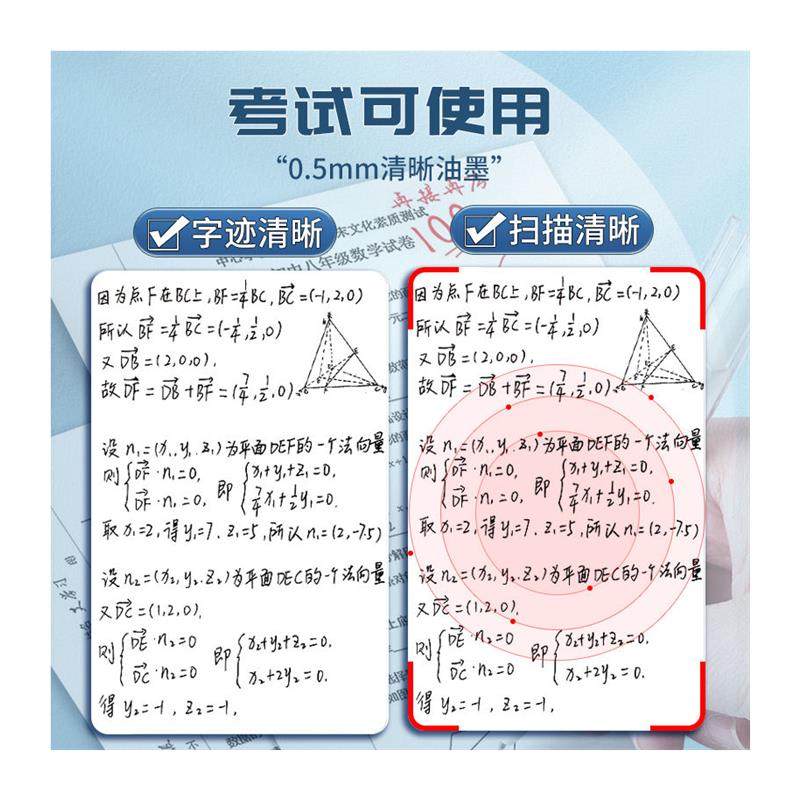 考试可使用
“0.5mm清晰油墨”
再接再
100
末文化素质测试
中八年级数学试卷
字迹清晰
扫描清晰
因为点F在BC上,BF=¼BC,BC=(-1,2,0)
所以BF=¼BC=(-¼,½,0)
又DB=(2,0,0),
故DF=DB+BF=(7/4,½,0)
设n₁=(x₁,y₁z₁)为平面DEF的一个法向量
则{DF·n₁=0, 即{x₁+y₁+z₁=0,
DF·n₁=0, 7/4x₁+½y₁=0.
取x₁=2,得y₁=7.z₁=5,所以n₁=(2,-7.5)
设n₂=(x₂,y₂.z₂)为平面DEC的一个法向量
又DC=(1,2,0).
则{DE·n₂=0 即{x₂+y₂+z₂=0.
DC·n₂=0 x₂+2y₂=0.
得y₂=-1,z₂=-1,
因为点F在BC上,BF=¼BC,BC=(-1,2,0)
所以BF=¼BC=(-¼,½,0)
又DB=(2,0,0),
故DF=DB+BF=(7/4,½,0)
设n₁=(x₁,y₁z₁)为平面DEF的一个法向量
则{DF·n₁=0, 即{x₁+y₁+z₁=0,
DF·n₁=0, 7/4x₁+½y₁=0.
取x₁=2,得y₁=7.z₁=5,所以n₁=(2,-7.5)
设n₂=(x₂,y₂.z₂)为平面DEC的一个法向量
又DC=(1,2,0).
则{DE·n₂=0 即{x₂+y₂+z₂=0.
DC·n₂=0 x₂+2y₂=0.
得y₂=-1,z₂=-1,